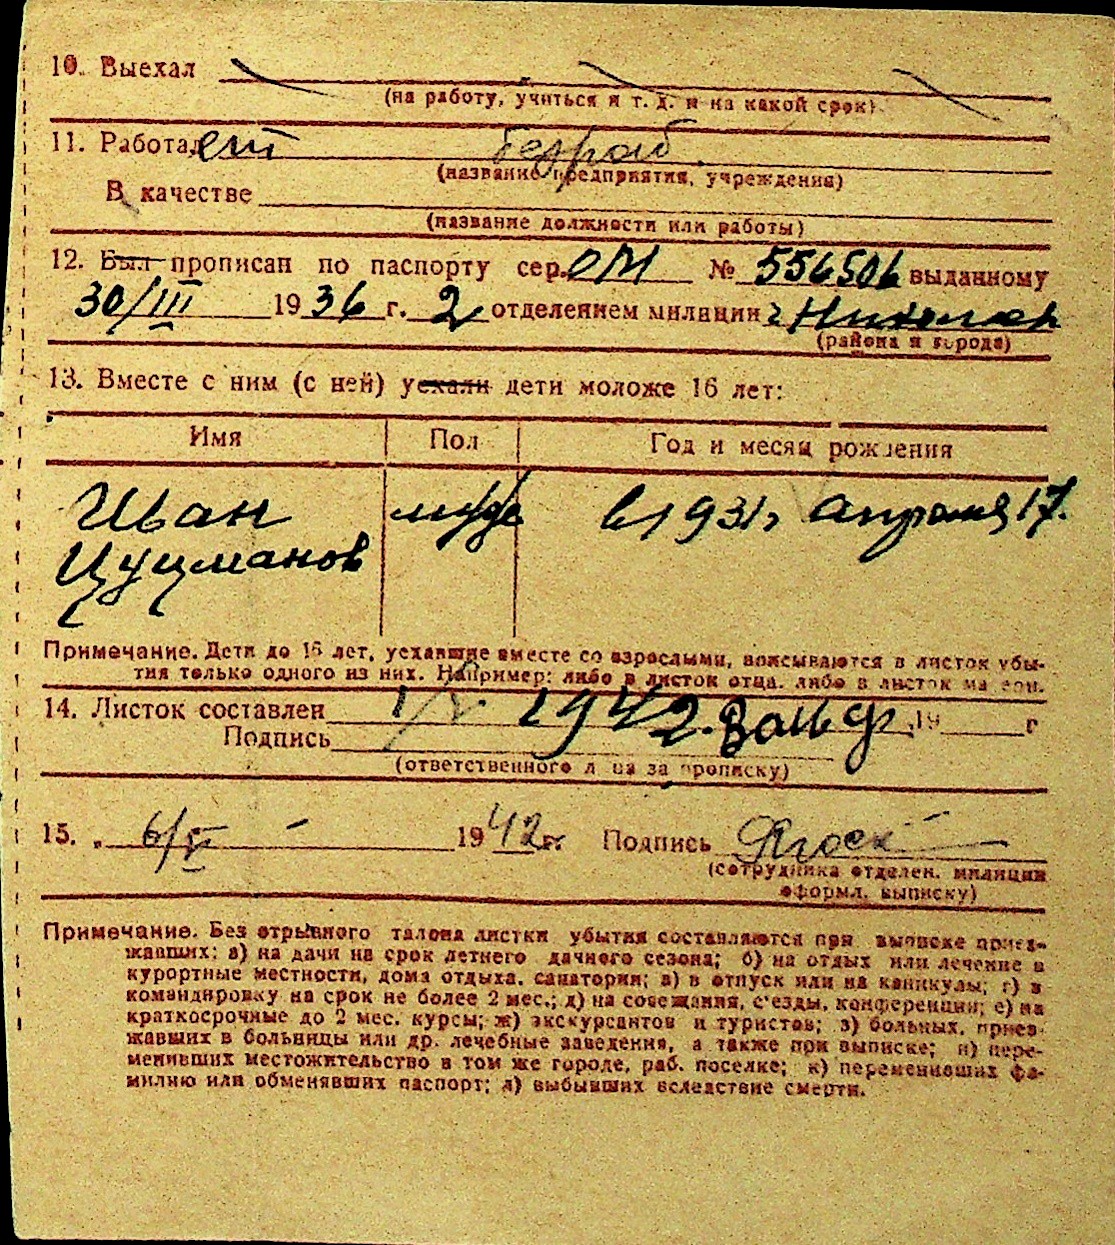 10. Выехал
(на работу, учиться и т. д. и на какой срок)
11. Работает безраб.
(название предприятия, учреждения)
В качестве
(название должности или работы)
12. Был прописан по паспорту сер. ОМ № 556506 выданному
30/III 1936 г. 2 отделением милиции г Николаев
(района и города)
13. Вместе с ним (с ней) уехали дети моложе 16 лет:
Имя Пол Год и месяц рождения
Иван муж в 1931г апреля 17.
Цуцманов
Примечание. Дети до 16 лет, уехавшие вместе со взрослыми, вписываются в листок убы-
тия только одного из них. Например: либо в листок отца, либо в листок матери.
14. Листок составлен 1/V 1942. 19 г
Подпись
(ответственного лица за прописку)
15. „ 6/V 1942 г. Подпись
(сотрудника отделен. милиции
оформл. выписку)
Примечание. Без отрывного талона листки убытия составляются при выписке приез-
жавших: а) на дачи на срок летнего дачного сезона; б) на отдых или лечение в
курортные местности, дома отдыха, санатории; в) в отпуск или на каникулы; г) в
командировку на срок не более 2 мес.; д) на совещания, с'езды, конференции; е) на
краткосрочные до 2 мес. курсы; ж) экскурсантов и туристов; з) больных, приез-
жавших в больницы или др. лечебные заведения, а также при выписке; и) пере-
менивших местожительство в том же городе, раб. поселке; к) переменивших фа-
милию или обменявших паспорт; л) выбывших вследствие смерти.